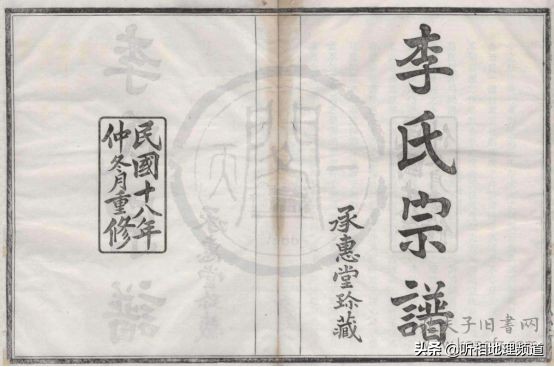 李氏宗譜
承惠堂珍藏
民國十八年
仲冬月重修
天子旧書网
头条 @听相地理频道